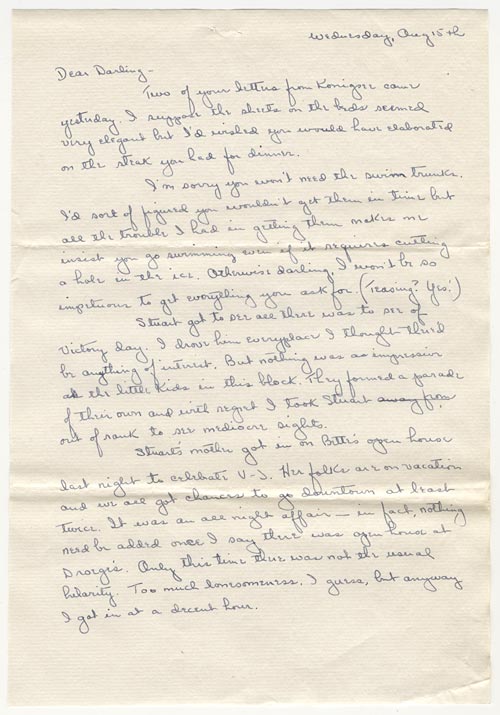 Wednesday, Aug 15th
Dear Darling -
Two of your letters from Konigsee came
yesterday. I suppose the sheets on the beds seemed
very elegant but I'd wished you would have elaborated
on the steak you had for dinner.
I'm sorry you won't need the swim trunks.
I'd sort of figured you wouldn't get them in time but
all the trouble I had in getting them makes me
insist you go swimming even if it requires cutting
a hole in the ice. Otherwise darling, I won't be so
impetuous to get everything you ask for. (Teasing? Yes!)
Stuart got to see all there was to see of
Victory day. I drove him everyplace I thought there'd
be anything of interest. But nothing was as impressive
as the little kids in this block. They formed a parade
of their own and with regret I took Stuart away from
out of rank to see mediocre sights.
Stuart's mother got in on Bette's open house
last night to celebrate V-J. Her folks are on vacation
and we all got chances to go downtown at least
twice. It was an all night affair — in fact, nothing
need be added once I say there was open house at
Droege's. Only this time there was not the usual
hilarity. Too much lonesomeness, I guess, but anyway
I got in at a decent hour.